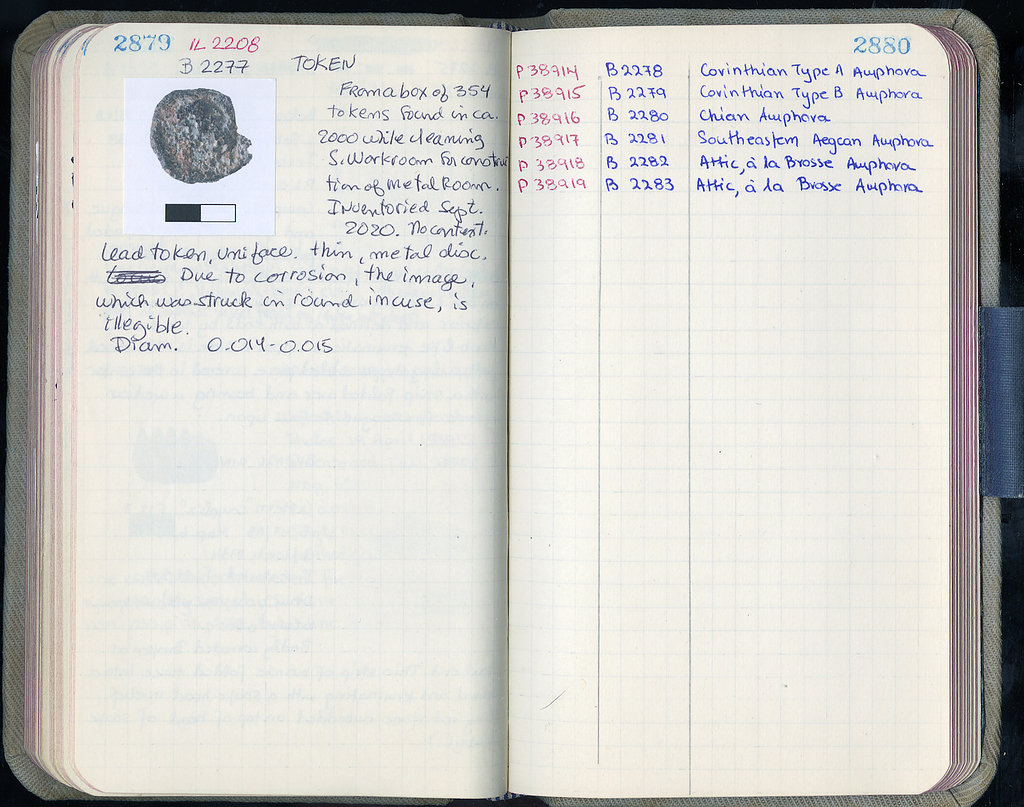 2879 IL 2208
B 2277 TOKEN
From a box of 354
tokens found in ca.
2000 while cleaning
S. Workroom for constru
tion of Metal Room.
Inventoried Sept.
2020. No context.
Lead token, uniface. Thin, metal disc.
Due to corrosion, the image,
which was struck in round incuse, is
illegible.
Diam. 0.014-0.015
2880
P 38914 B 2278 Corinthian Type A Amphora
P 38915 B 2279 Corinthian Type B Amphora
P 38916 B 2280 Chian Amphora
P 38917 B 2281 Southeastern Aegean Amphora
P 38918 B 2282 Attic, à la Brosse Amphora
P 38919 B 2283 Attic, à la Brosse Amphora